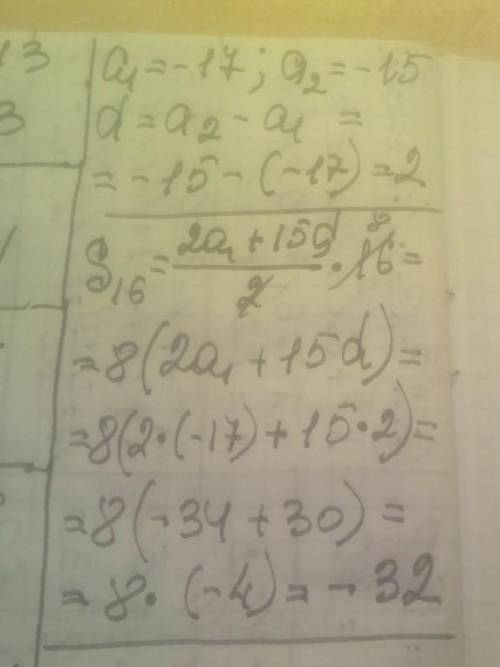 13
a₁=-17; a₂=-15
3
d=a₂-a₁ =
=-15-(-17)=2
S₁₆=\frac{2a₁+15d}{2}·16= 8
=8(2a₁+15d)=
=8(2·(-17)+15·2)=
=8(-34+30)=
=8·(-4)=-32